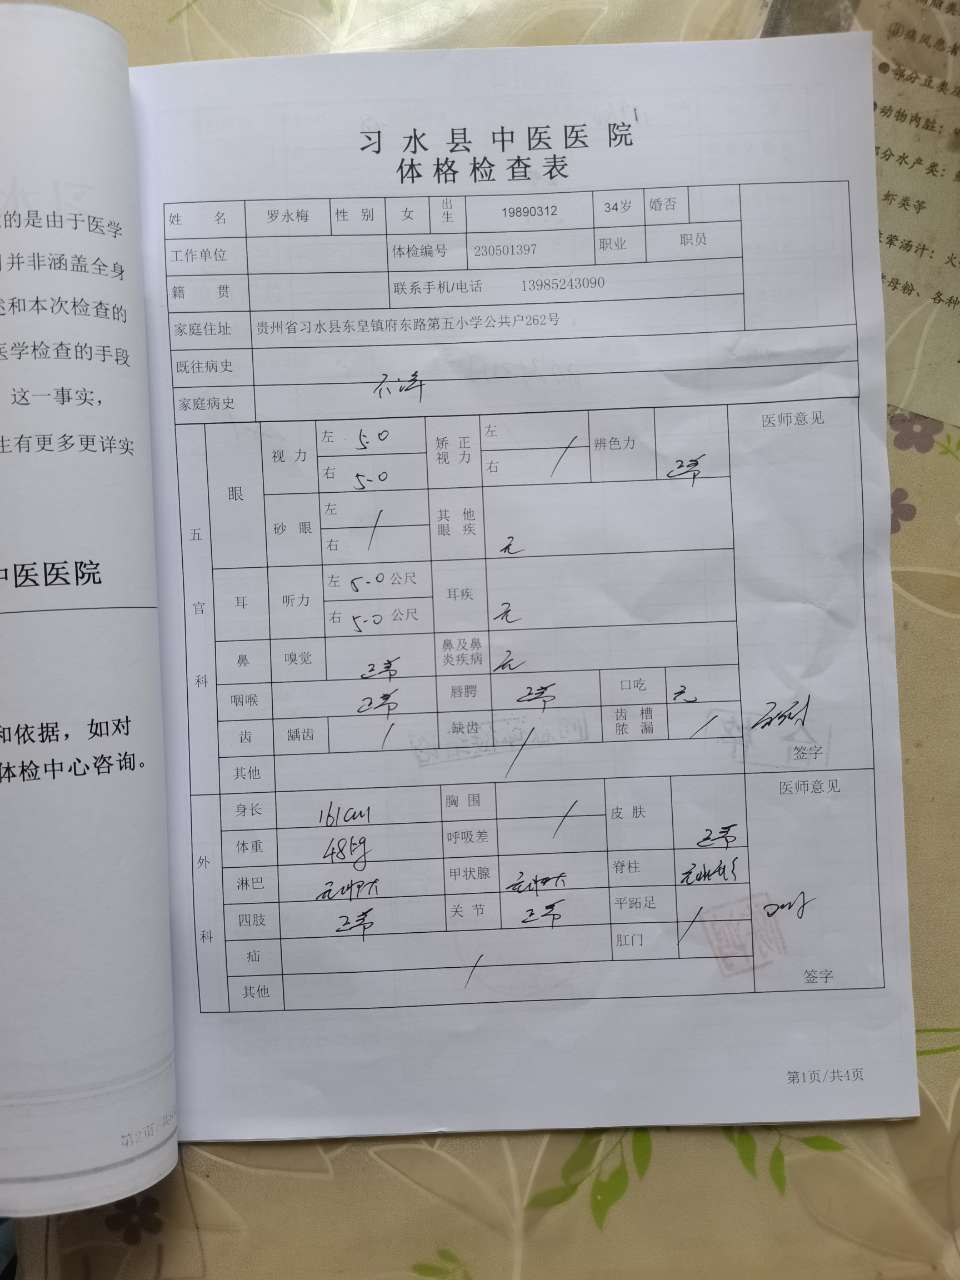 习水县中医医院
体格检查表
姓 名 罗永梅 性 别 女 出生 19890312 34岁 婚否
工作单位 体检编号 230501397 职业 职员
籍 贯 联系手机/电话 13985243090
家庭住址 贵州省习水县东皇镇府东路第五小学公共户262号
既往病史
家庭病史 不详
五官科 眼 视 力 左 5.0 矫正视力 左 / 辨色力 正常 医师意见
右 5.0 右
砂 眼 左 / 其他眼疾 无
右
耳 听力 左 5.0 公尺 耳疾 无
右 5.0 公尺
鼻 嗅觉 正常 鼻及鼻炎疾病 无
咽喉 正常 唇腭 正常 口吃 无
齿 龋齿 / 缺齿 / 齿槽脓漏 /
其他 签字
外科 身长 161cm 胸 围 / 皮 肤 正常 医师意见
体重 48kg 呼吸差
淋巴 无肿大 甲状腺 无肿大 脊柱
四肢 正常 关 节 正常 平跖足 /
疝 / 肛门
其他 签字
第1页/共4页
的是由于医学
并非涵盖全身
述和本次检查的
医学检查的手段
这一事实，
生有更多更详实
中医医院
和依据，如对
体检中心咨询。
部分豆类
动物内脏：
部分水产类：
虾类等
荤汤汁：火
母粉、各种